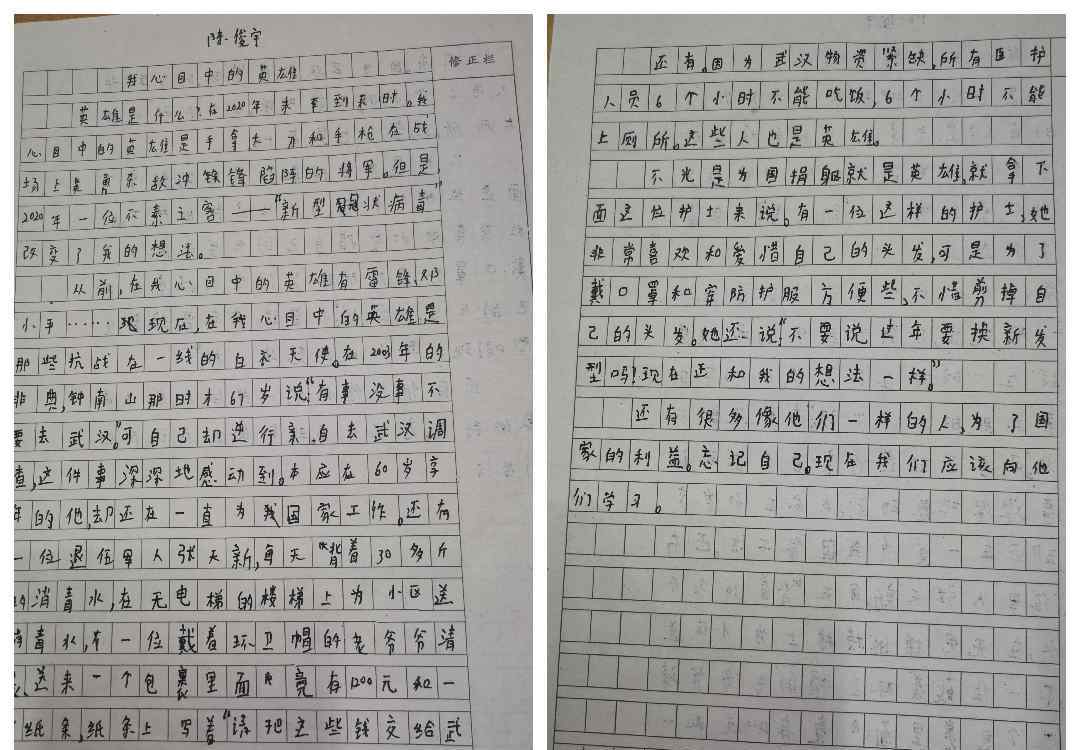 陈俊宇
修正栏
我心目中的英雄
英雄是什么？在2020年未来到来时。我
心目中的英雄是手拿大刀和手枪在战
场上英勇杀敌冲锋陷阵的将军。但是，
2020年一位不素之客——“新型冠状病毒”
改变了我的想法。
从前，在我心目中的英雄有雷锋，邓
小平……现现应，在我心目中的英雄是
那些抗战在一线的白衣天使。在2003年的
非典，钟南山那时才67岁说“有事没事不
要去武汉。”可自己却逆行亲自去武汉调
查，这件事深深地感动到。本应在60岁享
年的他，却还在一直为我国家工作。还有
一位退伍军人张天新，每天“背着30多斤
的消毒水，在无电梯的楼梯上为小区送
消毒水，有一位戴着环卫帽的老爷爷清
送来一个包裹里面竟有1200元和一
纸条，纸条上写着“请把这些钱交给武
还有。因为武汉物资紧缺，所有医护
人员6个小时不能吃饭，6个小时不能
上厕所。这些人也是英雄。
不光是为国捐躯就是英雄，就拿下
面这位护士来说。有一位这样的护士，她
非常喜欢和爱惜自己的头发，可是为了
戴口罩和穿防护服方便些，不惜剪掉自
己的头发。她还说“不要说过年要换新发
型吗？现在正和我的想法一样。”
还有很多像他们一样的人，为了国
家的利益。忘记自己。现在我们应该向他
们学习。